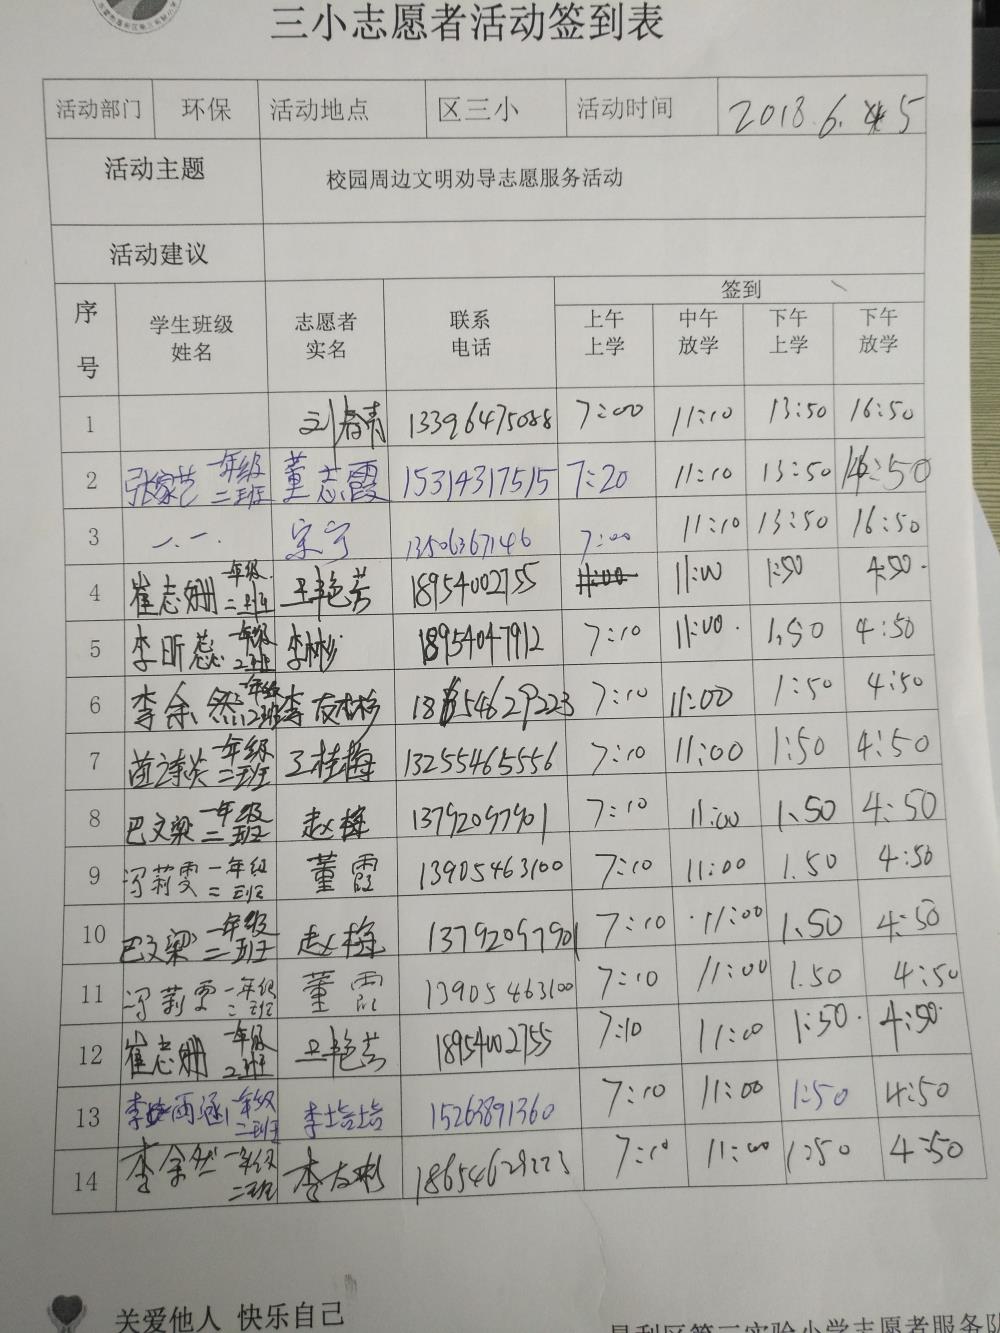 三小志愿者活动签到表
活动部门 环保 活动地点 区三小 活动时间 2018.6.5
活动主题 校园周边文明劝导志愿服务活动
活动建议
序号 学生班级姓名 志愿者实名 联系电话 签到
上午上学 中午放学 下午上学 下午放学
1 刘春青 13396475088 7:00 11:10 13:50 16:50
2 张家艺 一年级二班 董志霞 15314317515 7:20 11:10 13:50 16:50
3 一.一 宋宁 13506367146 7:00 11:10 13:50 16:50
4 崔志姗 一年级二班 卫艳芳 18954002755 11:00 1:50 4:50
5 李昕蕊 一年级2班 李彬 18954047912 7:10 11:00 1:50 4:50
6 李余然 一年级2班 李友彬 18654629223 7:10 11:00 1:50 4:50
7 一年级二班 王桂梅 13255465556 7:10 11:00 1:50 4:50
8 巴文梁 一年级二班 赵梅 13792097901 7:10 11:00 1.50 4:50
9 冯莉雯 一年级二班 董霞 13905463100 7:10 11:00 1.50 4:50
10 巴文梁 一年级二班 赵梅 13792097901 7:10 11:00 1.50 4:50
11 冯莉雯 一年级二班 董霞 13905463100 7:10 11:00 1.50 4:50
12 崔志姗 一年级2班 卫艳芳 18954002755 7:10 11:00 1:50 4:50
13 李雨涵 一年级二班 李培培 15263891360 7:10 11:00 1:50 4:50
14 李余然 一年级二班 李友彬 18654629223 7:10 11:00 1:50 4:50
关爱他人 快乐自己
垦利区第三实验小学志愿者服务队